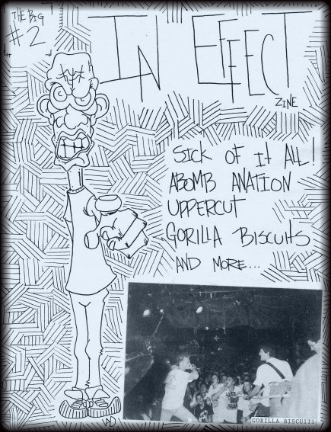 THE BIG
#2
IN EFFECT
ZINE
SICK OF IT ALL!
ABOMB ANATION
UPPERCUT
GORILLA BISCUITS
AND MORE...
GORILLA BISCUITS